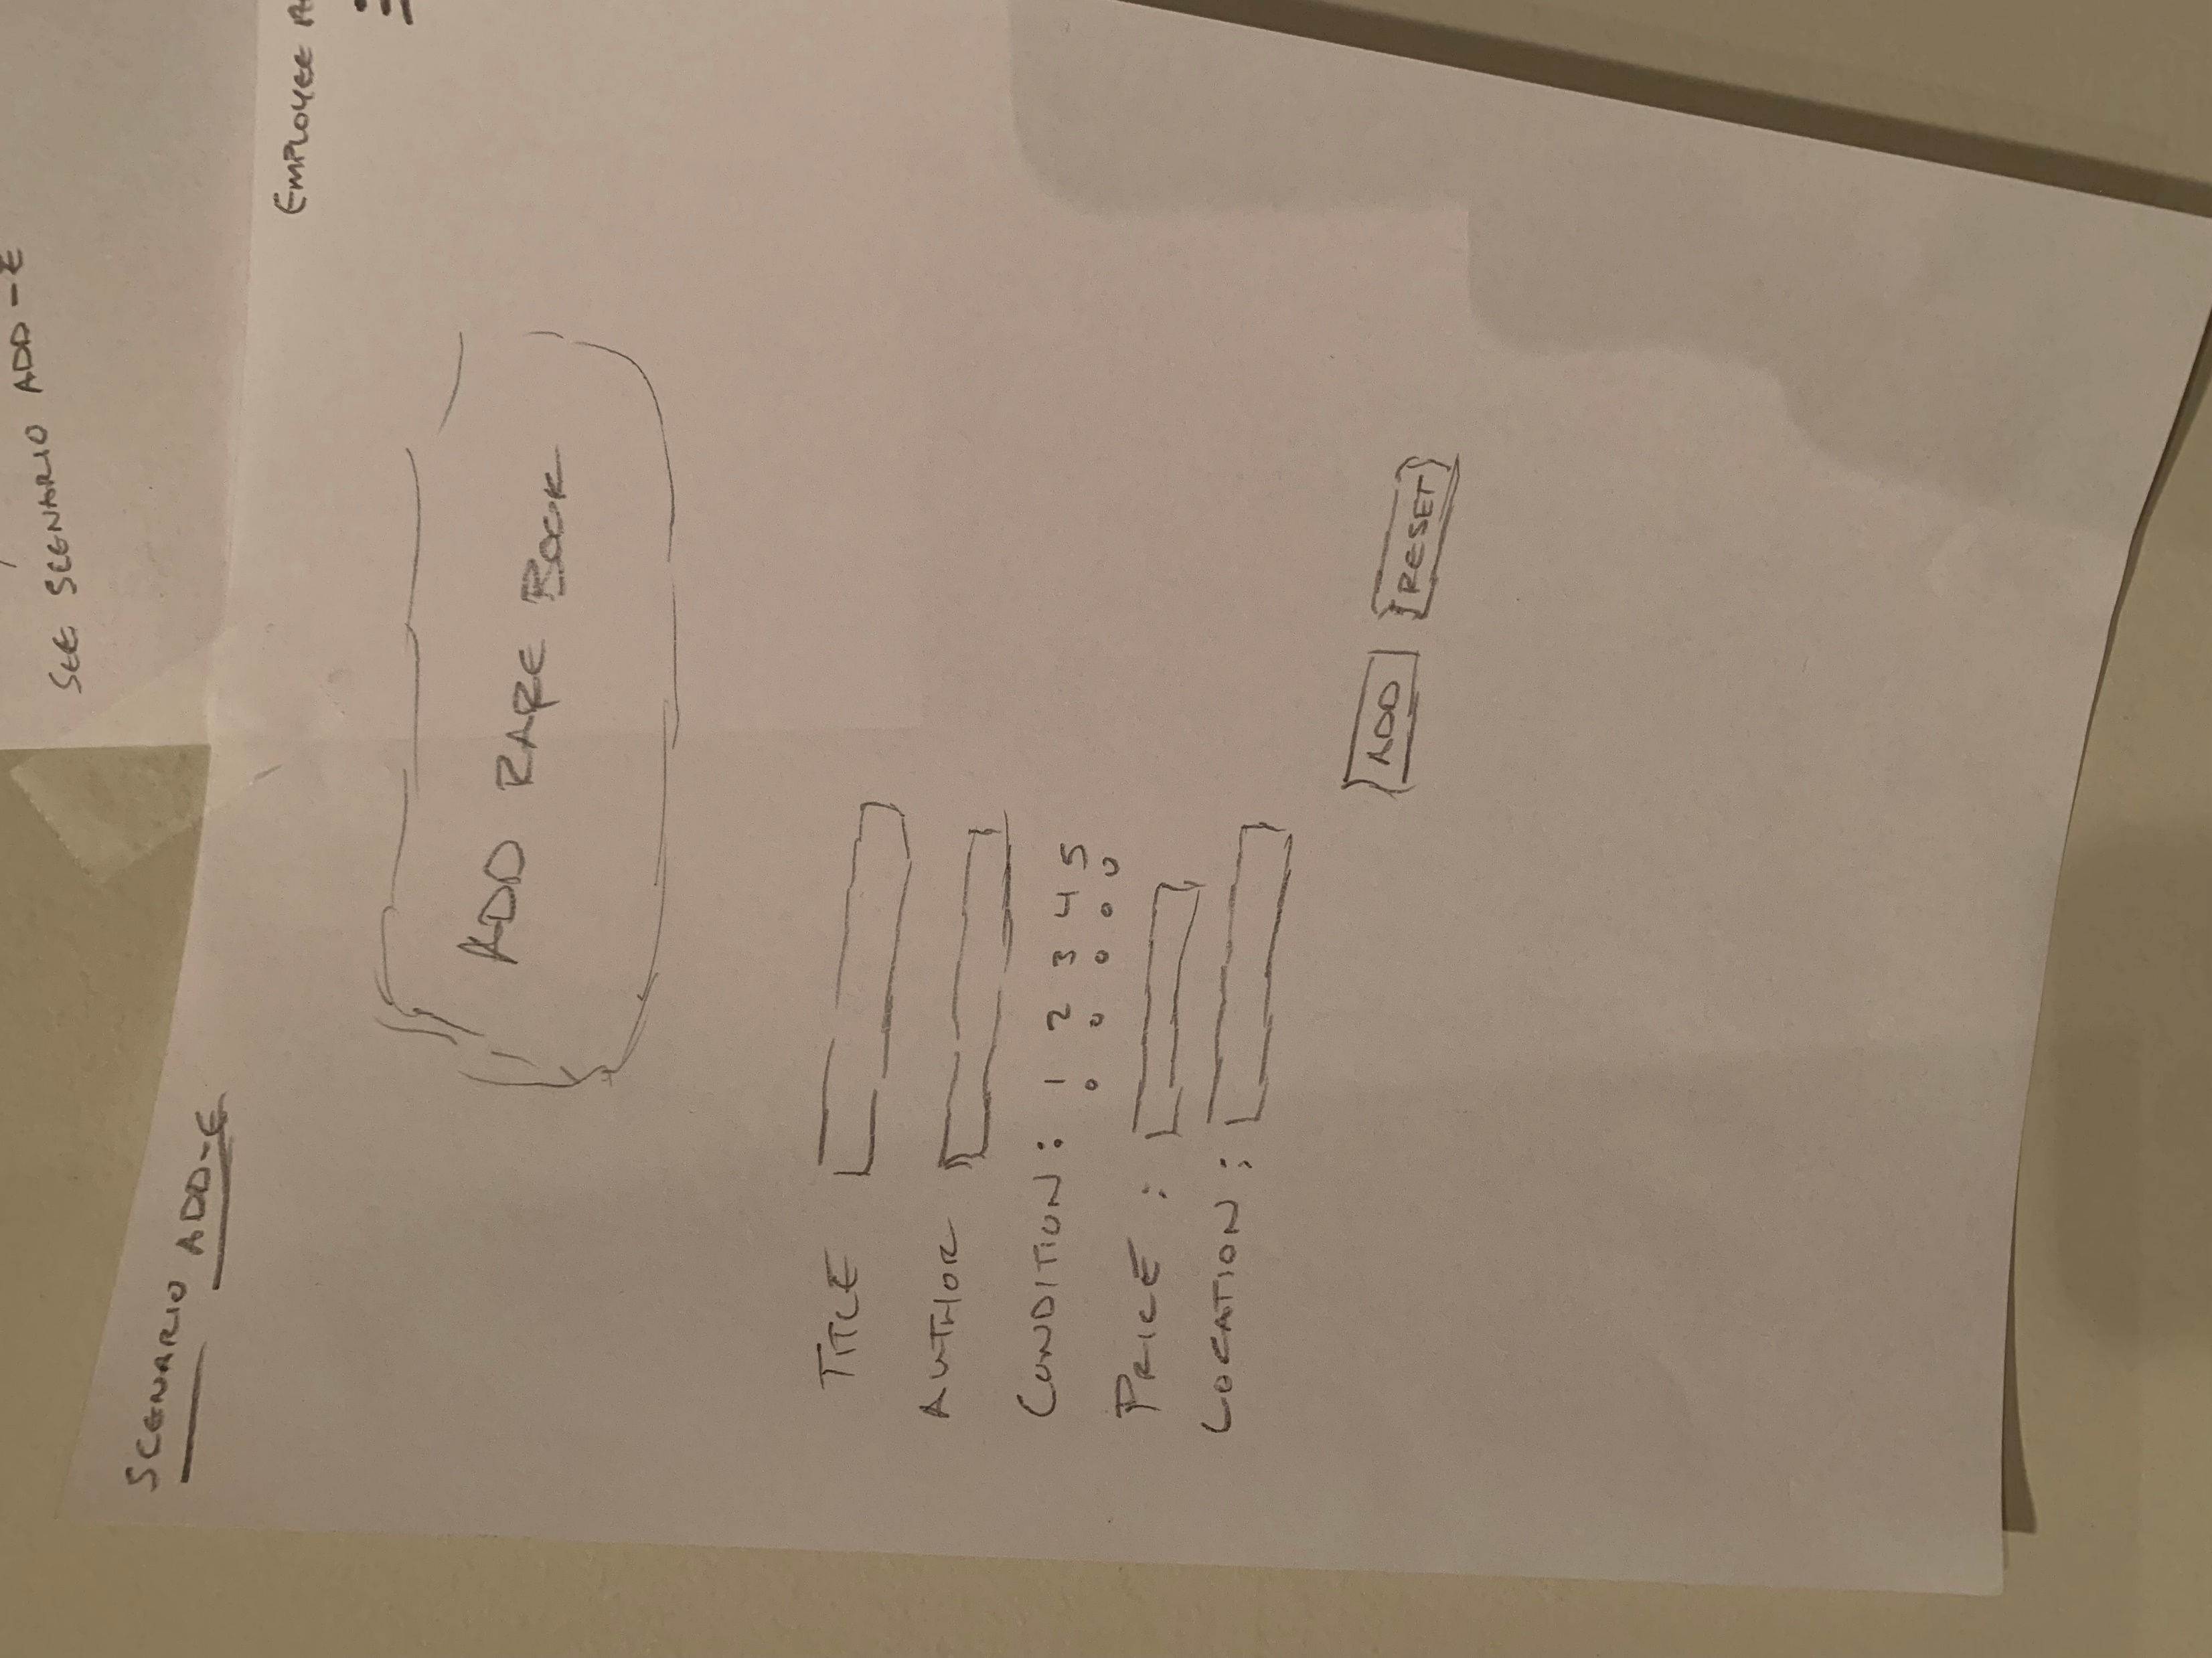 SEE SCENARIO ADD-E
SCENARIO ADD-E
EMPLOYEE
ADD RARE BOOK
TITLE
AUTHOR
CONDITION: 1 2 3 4 5
PRICE:
LOCATION:
ADD RESET